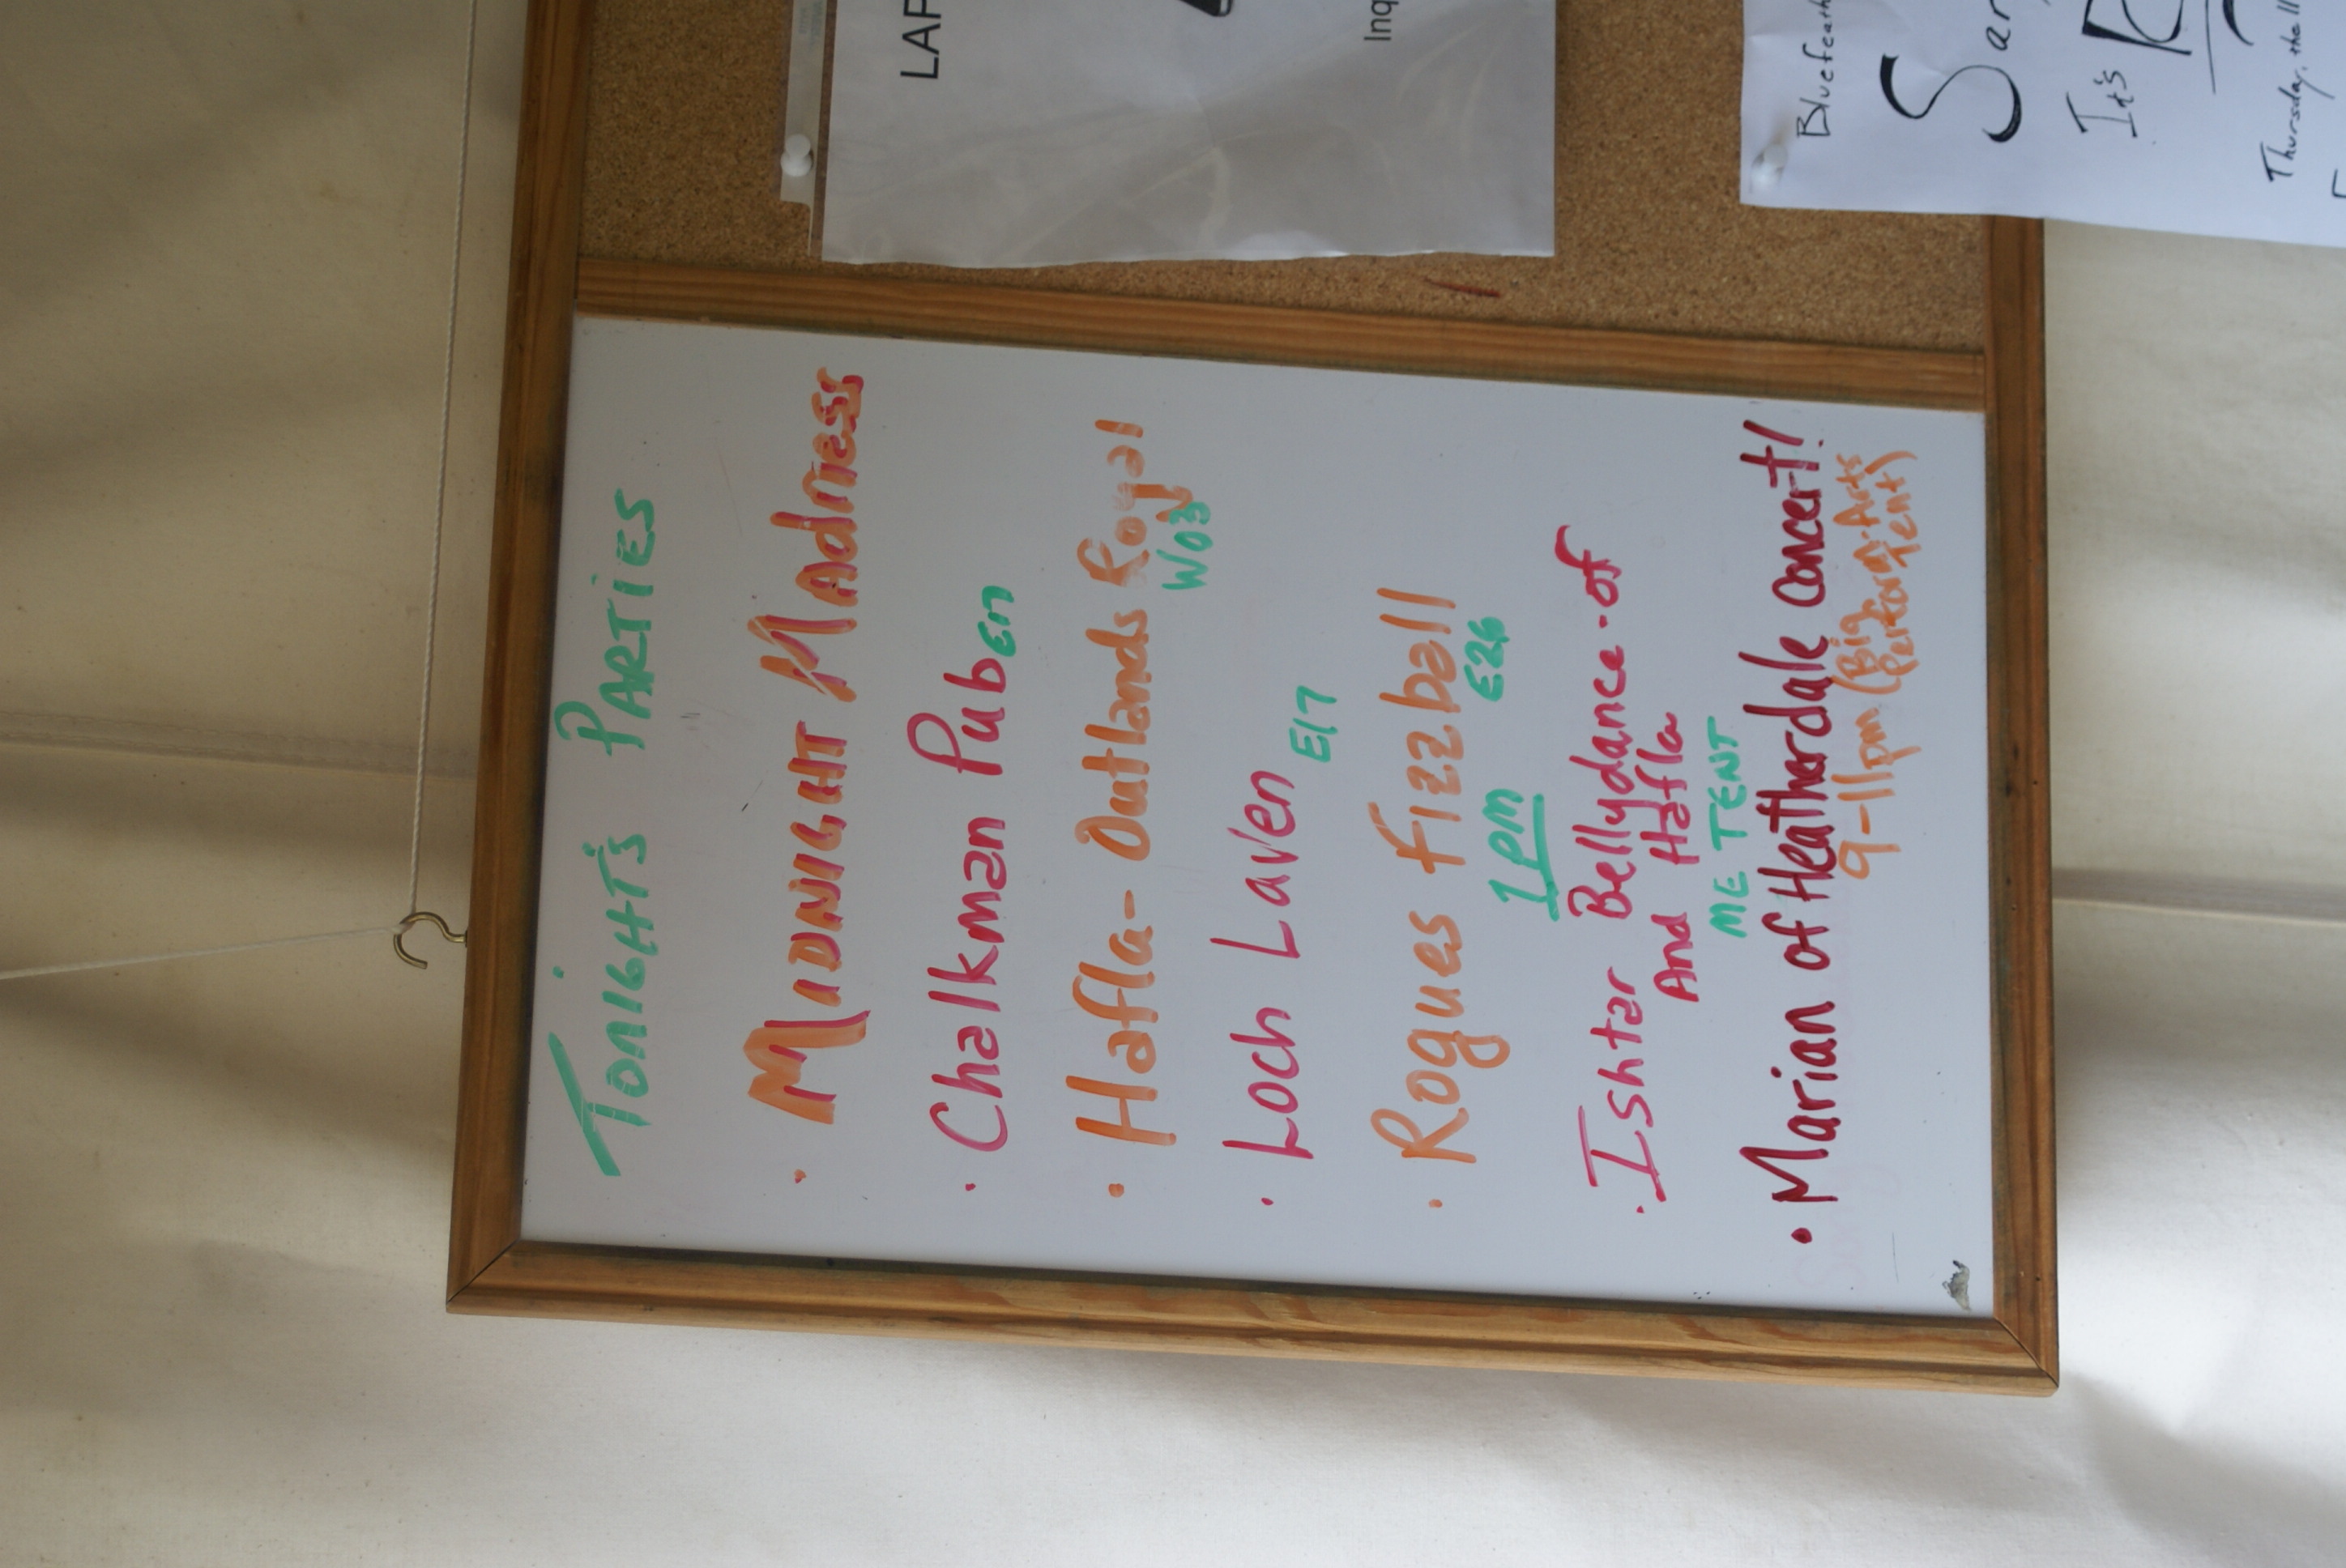 LAF
Inq
Bluefeath
Sar
It's
Thursday, the 11
TONIGHT'S PARTIES
• MIDNIGHT MADNESS
• Chalkman Pub
• Hafla - Outlands Royal
W03
• Loch Laven
E17
• Rogues Fizzball
E26
1pm
• Ishtar Bellydance - of
And Hafla
ME TENT
• Marian of Heatherdale concert!
9-11pm (Big Perform. Arts
Tent)